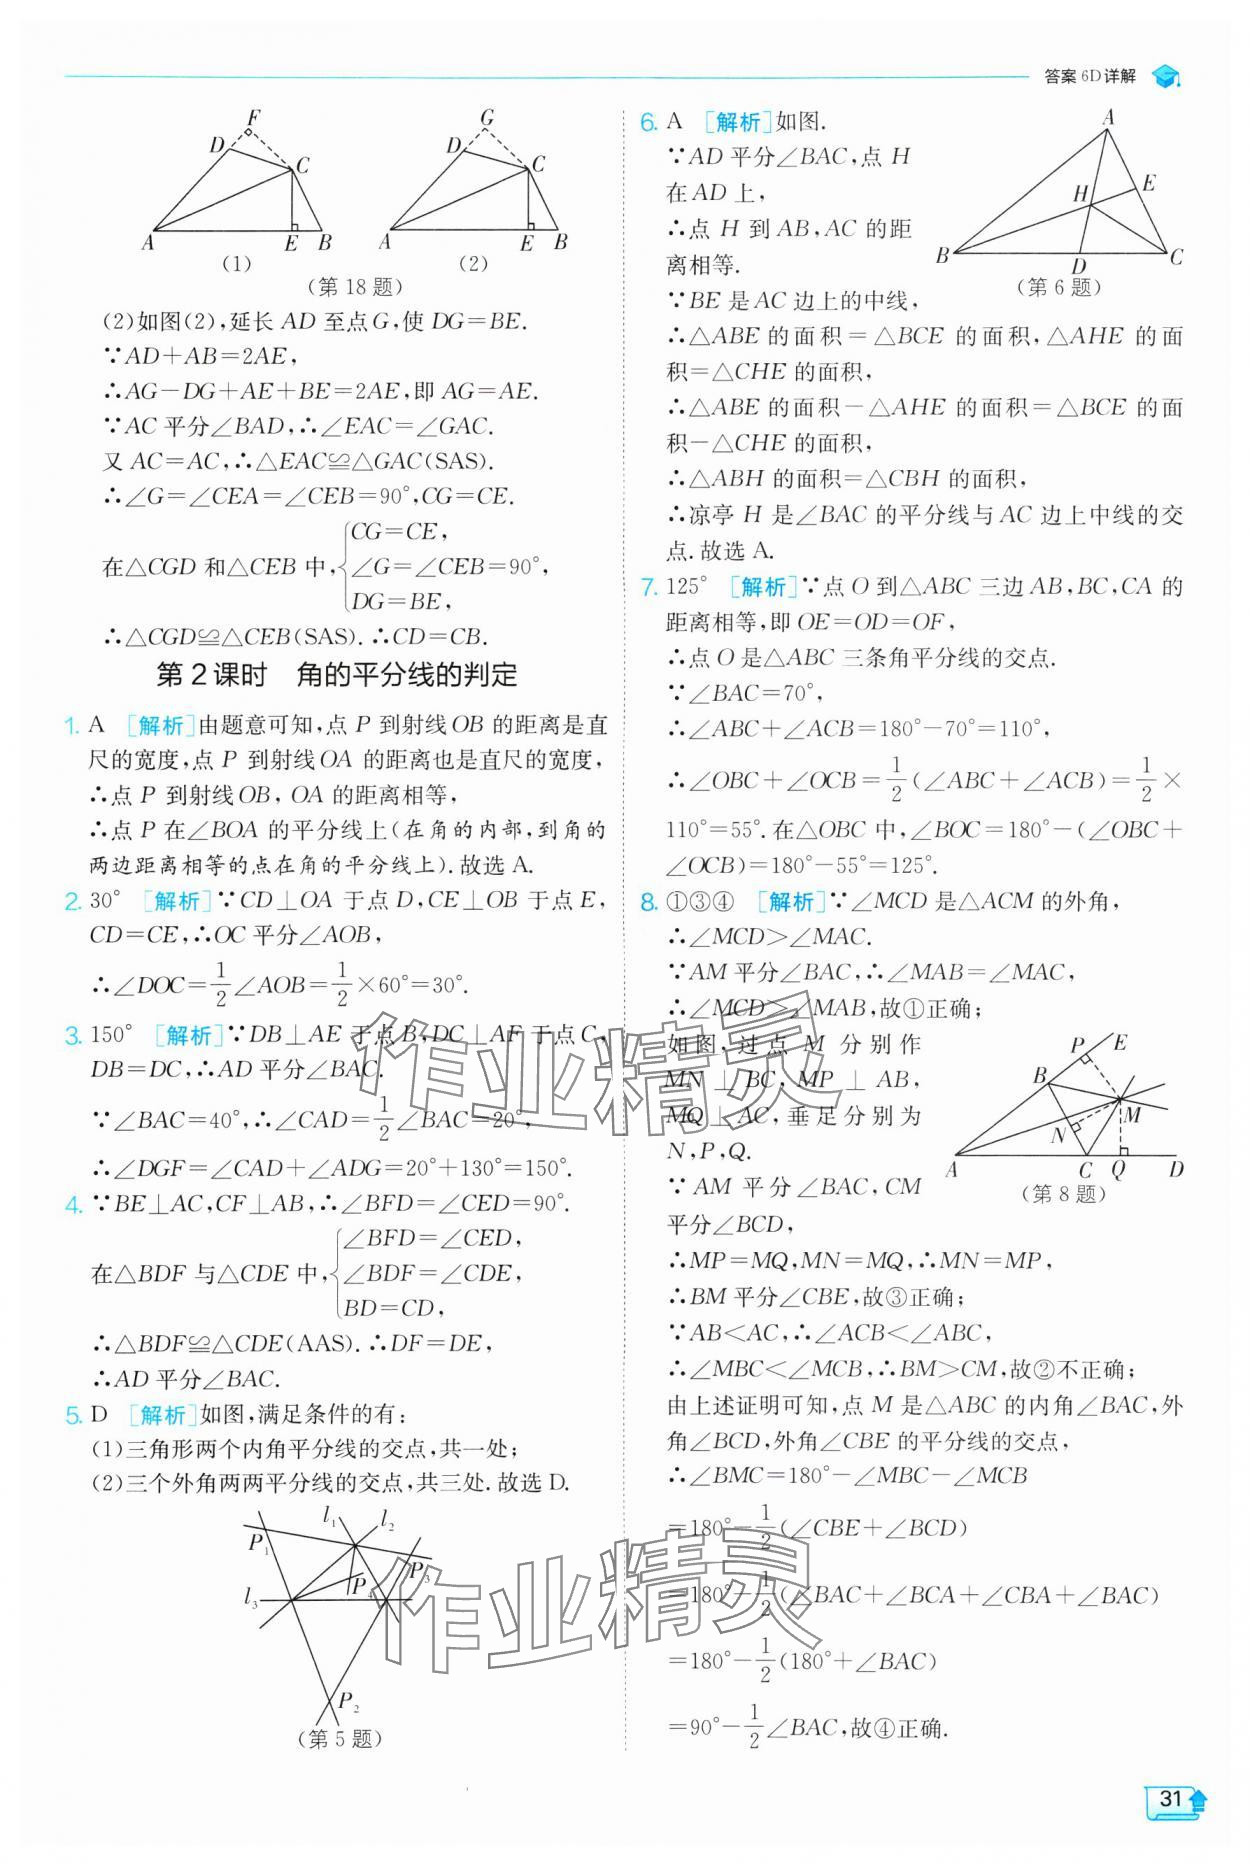 答案 6D 详解
F
D
C
A
E
B
(1)
G
D
C
A
E
B
(2)
(第 18 题)
(2)如图(2),延长 AD 至点 G,使 DG=BE.
∵AD+AB=2AE,
∴AG-DG+AE+BE=2AE,即 AG=AE.
∵AC 平分∠BAD,∴∠EAC=∠GAC.
又 AC=AC,∴△EAC≌△GAC(SAS).
∴∠G=∠CEA=∠CEB=90°,CG=CE.
CG=CE,
在△CGD 和△CEB 中,{∠G=∠CEB=90°,
DG=BE,
∴△CGD≌△CEB(SAS).∴CD=CB.
第 2 课时 角的平分线的判定
1. A [解析]由题意可知,点 P 到射线 OB 的距离是直
尺的宽度,点 P 到射线 OA 的距离也是直尺的宽度,
∴点 P 到射线 OB, OA 的距离相等,
∴点 P 在∠BOA 的平分线上(在角的内部,到角的
两边距离相等的点在角的平分线上).故选 A.
2. 30° [解析]∵CD⊥OA 于点 D,CE⊥OB 于点 E,
CD=CE,∴OC 平分∠AOB,
∴∠DOC=1/2∠AOB=1/2×60°=30°.
3. 150° [解析]∵DB⊥AE 于点 B,DC⊥AF 于点 C,
DB=DC,∴AD 平分∠BAC.
∵∠BAC=40°,∴∠CAD=1/2∠BAC=20°,
∴∠DGF=∠CAD+∠ADG=20°+130°=150°.
4. ∵BE⊥AC,CF⊥AB,∴∠BFD=∠CED=90°.
∠BFD=∠CED,
在△BDF 与△CDE 中,{∠BDF=∠CDE,
BD=CD,
∴△BDF≌△CDE(AAS).∴DF=DE,
∴AD 平分∠BAC.
5. D [解析]如图,满足条件的有:
(1)三角形两个内角平分线的交点,共一处;
(2)三个外角两两平分线的交点,共三处.故选 D.
l₁
l₂
P₁
P₄
l₃
P₂
(第 5 题)
6. A [解析]如图.
∵AD 平分∠BAC,点 H
在 AD 上,
∴点 H 到 AB,AC 的距
离相等.
A
H
E
B
D
C
(第 6 题)
∵BE 是 AC 边上的中线,
∴△ABE 的面积=△BCE 的面积,△AHE 的面
积=△CHE 的面积,
∴△ABE 的面积-△AHE 的面积=△BCE 的面
积-△CHE 的面积,
∴△ABH 的面积=△CBH 的面积,
∴凉亭 H 是∠BAC 的平分线与 AC 边上中线的交
点.故选 A.
7. 125° [解析]∵点 O 到△ABC 三边 AB,BC,CA 的
距离相等,即 OE=OD=OF,
∴点 O 是△ABC 三条角平分线的交点.
∵∠BAC=70°,
∴∠ABC+∠ACB=180°-70°=110°,
∴∠OBC+∠OCB=1/2(∠ABC+∠ACB)=1/2×
110°=55°.在△OBC 中,∠BOC=180°-(∠OBC+
∠OCB)=180°-55°=125°.
8. ①③④ [解析]∵∠MCD 是△ACM 的外角,
∴∠MCD>∠MAC.
∵AM 平分∠BAC,∴∠MAB=∠MAC,
∴∠MCD>∠MAB,故①正确;
如图,过点 M 分别作
MN⊥BC,MP⊥AB,
MQ⊥AC,垂足分别为
N,P,Q.
∵AM 平分∠BAC,CM
平分∠BCD,
P
E
B
M
N
A
C
Q
D
(第 8 题)
∴MP=MQ,MN=MQ,∴MN=MP,
∴BM 平分∠CBE,故③正确;
∵AB<AC,∴∠ACB<∠ABC,
∴∠MBC<∠MCB,∴BM>CM,故②不正确;
由上述证明可知,点 M 是△ABC 的内角∠BAC,外
角∠BCD,外角∠CBE 的平分线的交点,
∴∠BMC=180°-∠MBC-∠MCB
=180°-1/2(∠CBE+∠BCD)
=180°-1/2(∠BAC+∠BCA+∠CBA+∠BAC)
=180°-1/2(180°+∠BAC)
=90°-1/2∠BAC,故④正确.
作业精灵
作业精灵
31